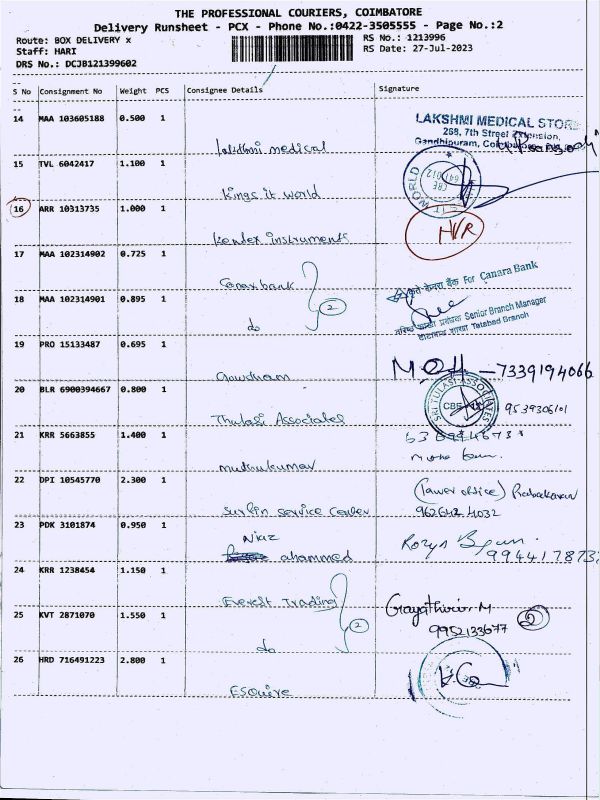 THE PROFESSIONAL COURIERS, COIMBATORE
Delivery Runsheet - PCX - Phone No.:0422-3505555 - Page No.:2
Route: BOX DELIVERY x
RS No.: 1213996
Staff: HARI
RS Date: 27-Jul-2023
DRS No.: DCJB121399602
S No Consignment No Weight PCS Consignee Details Signature
14 MAA 103605188 0.500 1
LAKSHMI MEDICAL STORE
268, 7th Street Extension,
Gandhipuram,
Lakshmi medical
15 TVL 6042417 1.100 1
Kings it world
16 ARR 10313735 1.000 1
HVR
Kendex instruments
17 MAA 102314902 0.725 1
Canara bank
कृते केनरा बैंक For Canara Bank
18 MAA 102314901 0.895 1
2
do
Senior Branch Manager
Tatabad Branch
19 PRO 15133487 0.695 1
Gowdham
7339194066
20 BLR 6900394667 0.800 1
SRI TULASI ASSOCIATES
CBE
9539306101
Thulasi Associates
21 KRR 5663855 1.400 1
muthukumar
22 DPI 10545770 2.300 1
(Lawer office) Prabackaran
Surfin service Center
23 PDK 3101874 0.950 1
Niaz
ahammed
24 KRR 1238454 1.150 1
Everest Trading
Gayathiri.M
9952133677
2
25 KVT 2871070 1.550 1
2
do
26 HRD 716491223 2.800 1
Esquire